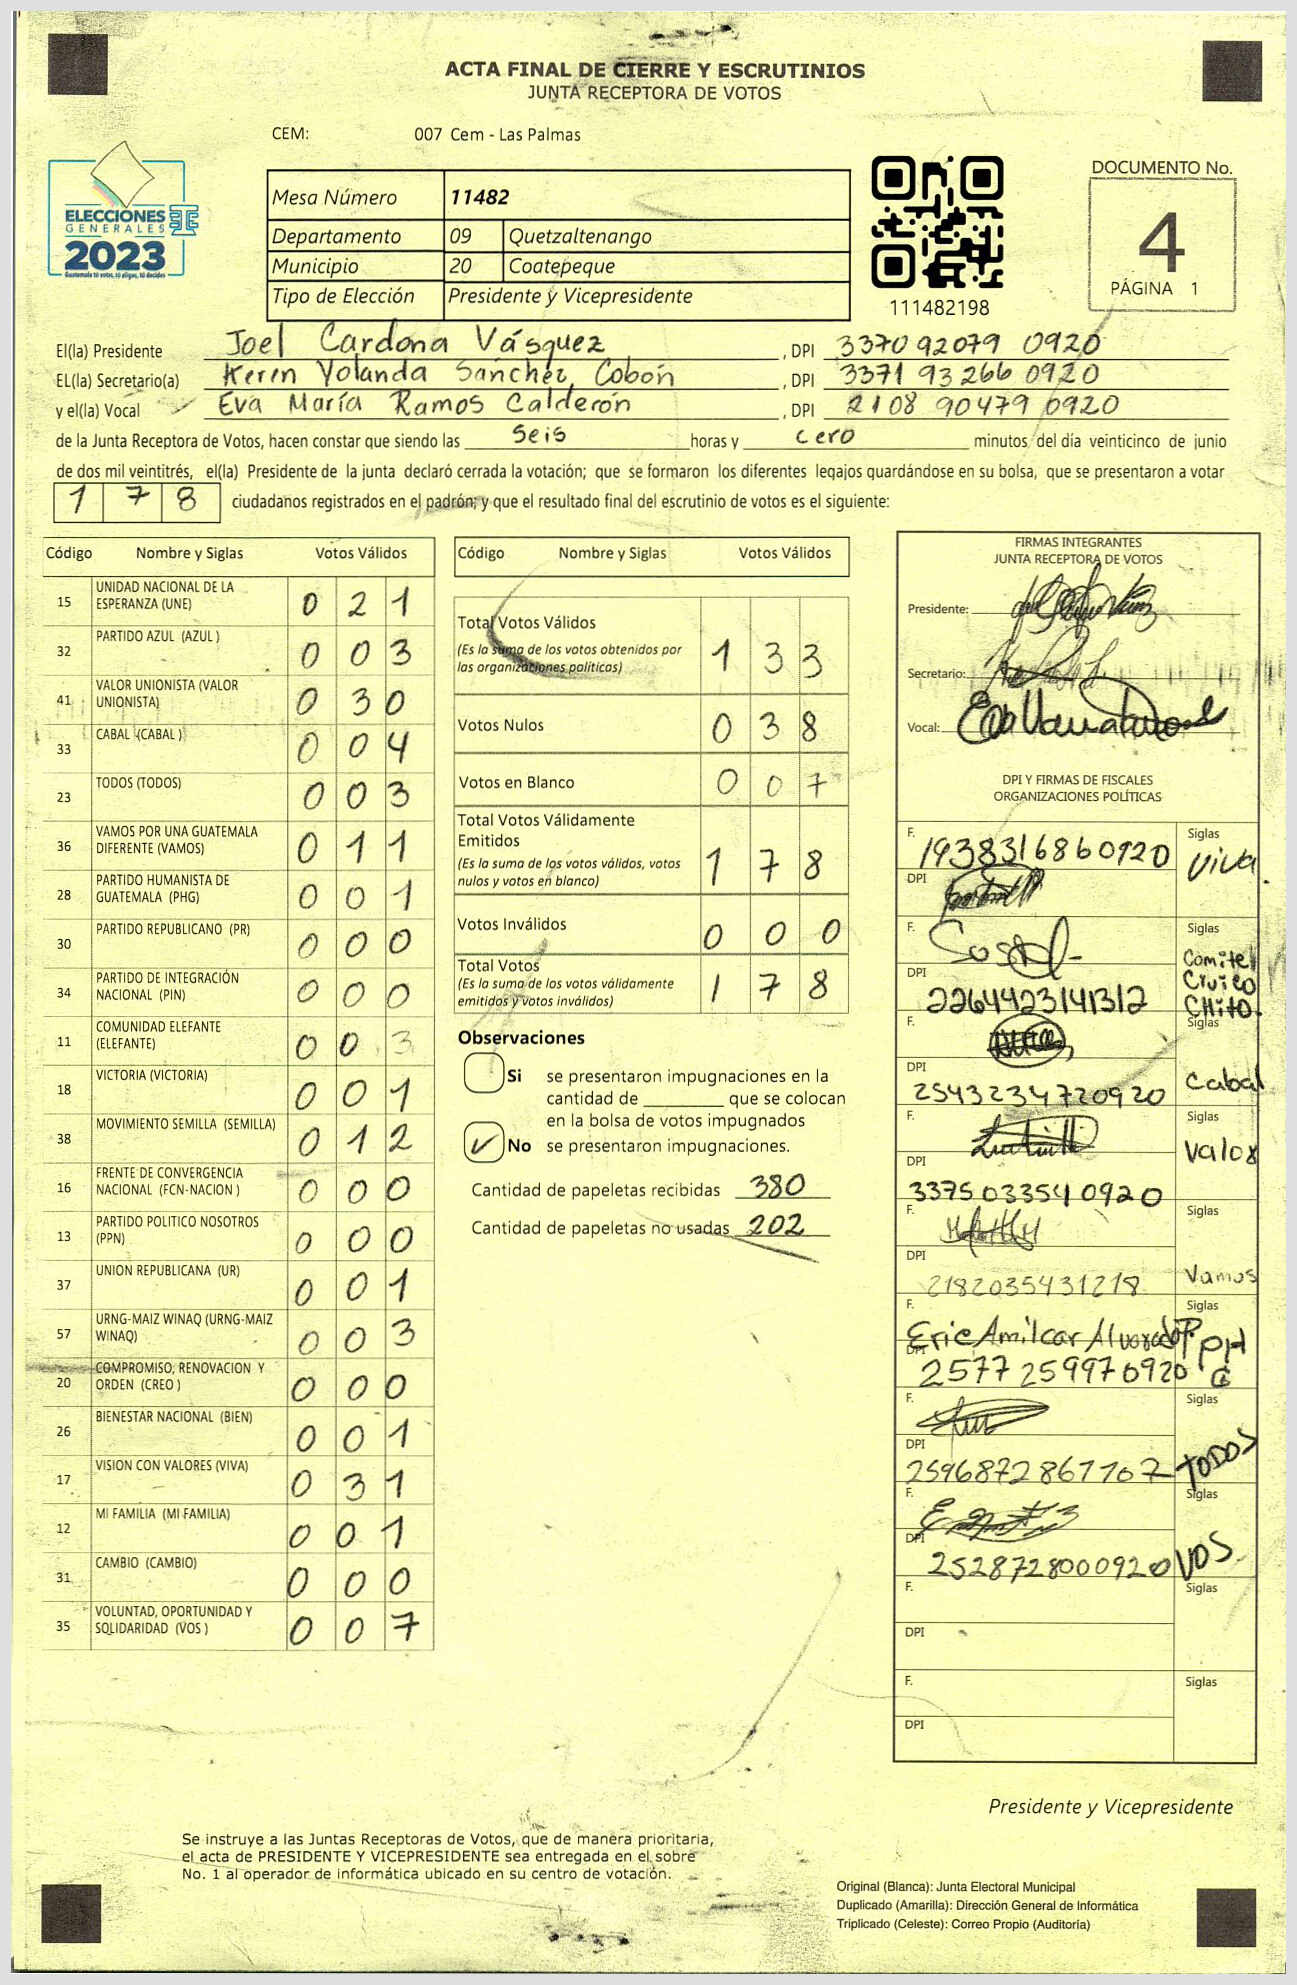 ACTA FINAL DE CIERRE Y ESCRUTINIOS
JUNTA RECEPTORA DE VOTOS
CEM: 007 Cem - Las Palmas
ELECCIONES
GENERALES
2023
Guatemala tú votas, tú eliges, tú decides
Mesa Número 11482
Departamento 09 Quetzaltenango
Municipio 20 Coatepeque
Tipo de Elección Presidente y Vicepresidente
111482198
DOCUMENTO No.
4
PÁGINA 1
El(la) Presidente Joel Cardona Vásquez , DPI 3370 92079 0920
EL(la) Secretario(a) Keren Yolanda Sánchez Cobón , DPI 3371 93266 0920
y el(la) Vocal Eva María Ramos Calderón , DPI 2108 90479 0920
de la Junta Receptora de Votos, hacen constar que siendo las seis horas y cero minutos del día veinticinco de junio
de dos mil veintitrés, el(la) Presidente de la junta declaró cerrada la votación; que se formaron los diferentes legajos guardándose en su bolsa, que se presentaron a votar
1 7 8 ciudadanos registrados en el padrón; y que el resultado final del escrutinio de votos es el siguiente:
Código Nombre y Siglas Votos Válidos
15 UNIDAD NACIONAL DE LA ESPERANZA (UNE) 0 2 1
32 PARTIDO AZUL (AZUL ) 0 0 3
41 VALOR UNIONISTA (VALOR UNIONISTA) 0 3 0
33 CABAL (CABAL ) 0 0 4
23 TODOS (TODOS) 0 0 3
36 VAMOS POR UNA GUATEMALA DIFERENTE (VAMOS) 0 1 1
28 PARTIDO HUMANISTA DE GUATEMALA (PHG) 0 0 1
30 PARTIDO REPUBLICANO (PR) 0 0 0
34 PARTIDO DE INTEGRACIÓN NACIONAL (PIN) 0 0 0
11 COMUNIDAD ELEFANTE (ELEFANTE) 0 0 3
18 VICTORIA (VICTORIA) 0 0 1
38 MOVIMIENTO SEMILLA (SEMILLA) 0 1 2
16 FRENTE DE CONVERGENCIA NACIONAL (FCN-NACION ) 0 0 0
13 PARTIDO POLITICO NOSOTROS (PPN) 0 0 0
37 UNION REPUBLICANA (UR) 0 0 1
57 URNG-MAIZ WINAQ (URNG-MAIZ WINAQ) 0 0 3
20 COMPROMISO, RENOVACION Y ORDEN (CREO ) 0 0 0
26 BIENESTAR NACIONAL (BIEN) 0 0 1
17 VISION CON VALORES (VIVA) 0 3 1
12 MI FAMILIA (MI FAMILIA) 0 0 1
31 CAMBIO (CAMBIO) 0 0 0
35 VOLUNTAD, OPORTUNIDAD Y SOLIDARIDAD (VOS ) 0 0 7
Código Nombre y Siglas Votos Válidos
Total Votos Válidos
(Es la suma de los votos obtenidos por las organizaciones políticas) 1 3 3
Votos Nulos 0 3 8
Votos en Blanco 0 0 7
Total Votos Válidamente Emitidos
(Es la suma de los votos válidos, votos nulos y votos en blanco) 1 7 8
Votos Inválidos 0 0 0
Total Votos
(Es la suma de los votos válidamente emitidos y votos inválidos) 1 7 8
Observaciones
Si se presentaron impugnaciones en la
cantidad de ________ que se colocan
en la bolsa de votos impugnados
No se presentaron impugnaciones.
Cantidad de papeletas recibidas 380
Cantidad de papeletas no usadas 202
FIRMAS INTEGRANTES
JUNTA RECEPTORA DE VOTOS
Presidente:
Secretario:
Vocal:
DPI Y FIRMAS DE FISCALES
ORGANIZACIONES POLÍTICAS
F. 1938316860920 Siglas Viva.
DPI
F. Siglas Comite Civico Chito.
DPI 2264423141312
F. Siglas Cabal
DPI 2543234720920
F. Siglas Valor
DPI 3375033540920
F. Siglas Vamos
DPI 2182035431218
F. Eric Amilcar Alvarado P. Siglas PHG
DPI 2577 25997 0920
F. Siglas TODOS
DPI 2596872861107
F. Siglas VOS
DPI 2528728000920
F. Siglas
DPI
F. Siglas
DPI
Presidente y Vicepresidente
Se instruye a las Juntas Receptoras de Votos, que de manera prioritaria,
el acta de PRESIDENTE Y VICEPRESIDENTE sea entregada en el sobre
No. 1 al operador de informática ubicado en su centro de votación.
Original (Blanca): Junta Electoral Municipal
Duplicado (Amarilla): Dirección General de Informática
Triplicado (Celeste): Correo Propio (Auditoría)